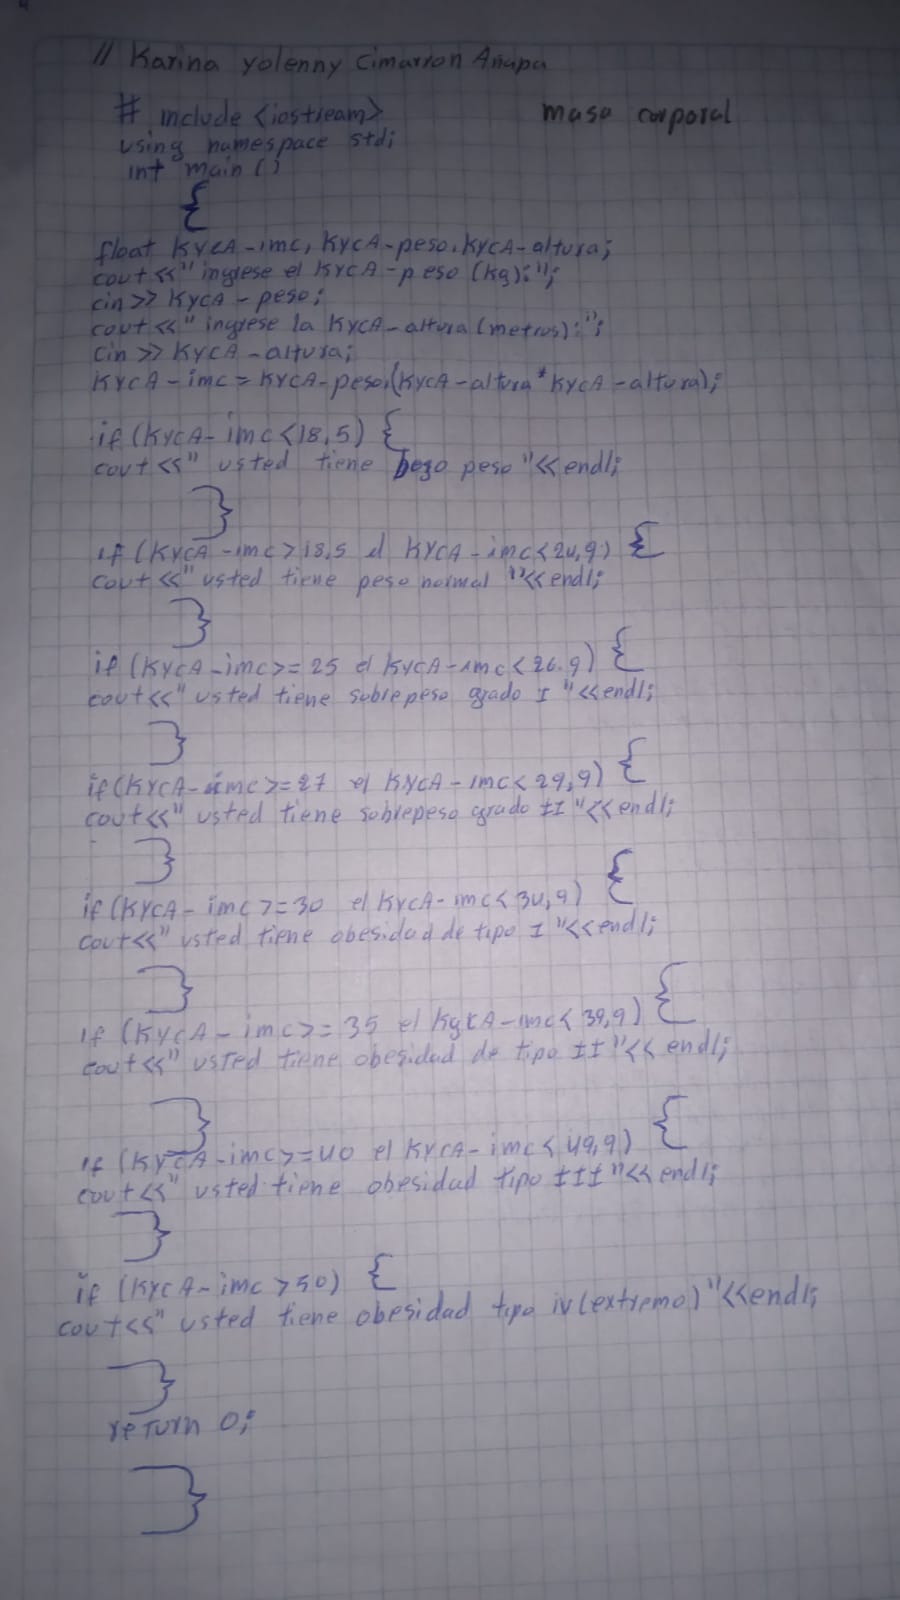 // Karina yolenny Cimarron Añapa
masa corporal
# include <iostream>
using namespace std;
int main ()
{
float KYCA-imc, KYCA-peso, KYCA-altura;
cout <<" ingrese el KYCA-peso (kg):";
cin >> KYCA-peso;
cout <<" ingrese la KYCA-altura (metros):";
cin >> KYCA-altura;
KYCA-imc = KYCA-peso/(KYCA-altura*KYCA-altura);
if (KYCA-imc<18,5) {
cout <<" usted tiene bajo peso "<<endl;
}
if (KYCA-imc>18,5 el KYCA-imc<24,9) {
cout <<" usted tiene peso normal "<<endl;
}
if (KYCA-imc>=25 el KYCA-imc<26.9) {
cout <<" usted tiene sobrepeso grado I "<<endl;
}
if (KYCA-imc>=27 el KYCA-imc<29,9) {
cout <<" usted tiene sobrepeso grado II "<<endl;
}
if (KYCA-imc>=30 el KYCA-imc<34,9) {
cout <<" usted tiene obesidad de tipo I "<<endl;
}
if (KYCA-imc>=35 el KYCA-imc<39,9) {
cout <<" usted tiene obesidad de tipo II "<< endl;
}
if (KYCA-imc>=40 el KYCA-imc<49,9) {
cout <<" usted tiene obesidad tipo III "<< endl;
}
if (KYCA-imc>50) {
cout <<" usted tiene obesidad tipo iv (extremo) "<<endl;
}
return 0;
}